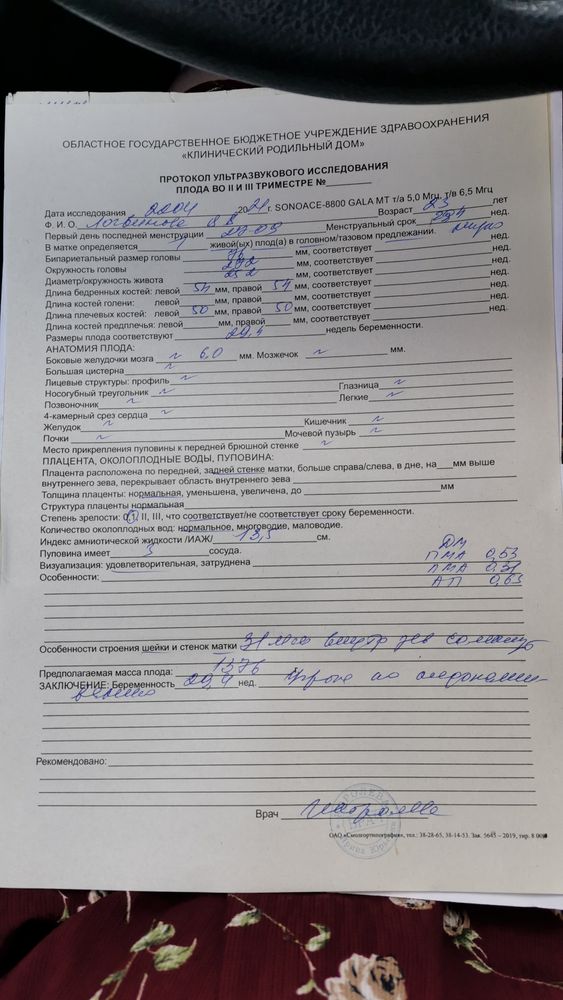 ОБЛАСТНОЕ ГОСУДАРСТВЕННОЕ БЮДЖЕТНОЕ УЧРЕЖДЕНИЕ ЗДРАВООХРАНЕНИЯ
«КЛИНИЧЕСКИЙ РОДИЛЬНЫЙ ДОМ»
ПРОТОКОЛ УЛЬТРАЗВУКОВОГО ИССЛЕДОВАНИЯ
ПЛОДА ВО II И III ТРИМЕСТРЕ №
Дата исследования 2204 2021 г. SONOACE-8800 GALA MT т/а 5,0 Мгц, т/в 6,5 Мгц
Ф. И. О. Возраст 23 лет
Первый день последней менструации Менструальный срок нед.
В матке определяется 1 живой(ых) плод(а) в головном/тазовом предлежании.
Бипариетальный размер головы 76 мм, соответствует нед.
Окружность головы мм, соответствует нед.
Диаметр/окружность живота 252 мм, соответствует нед.
Длина бедренных костей: левой 54 мм, правой 54 мм, соответствует нед.
Длина костей голени: левой мм, правой мм, соответствует нед.
Длина плечевых костей: левой 50 мм, правой 50 мм, соответствует нед.
Длина костей предплечья: левой мм, правой мм, соответствует нед.
Размеры плода соответствуют 29,4 недель беременности.
АНАТОМИЯ ПЛОДА:
Боковые желудочки мозга N 6,0 мм. Мозжечок N мм.
Большая цистерна N
Лицевые структуры: профиль N Глазница N
Носогубный треугольник N Легкие N
Позвоночник N
4-камерный срез сердца N
Желудок N Кишечник N
Почки N Мочевой пузырь N
Место прикрепления пуповины к передней брюшной стенке N
ПЛАЦЕНТА, ОКОЛОПЛОДНЫЕ ВОДЫ, ПУПОВИНА:
Плацента расположена по передней, задней стенке матки, больше справа/слева, в дне, на мм выше
внутреннего зева, перекрывает область внутреннего зева
Толщина плаценты: нормальная, уменьшена, увеличена, до мм
Структура плаценты нормальная
Степень зрелости: 0, I, II, III, что соответствует/не соответствует сроку беременности.
Количество околоплодных вод: нормальное, многоводие, маловодие.
Индекс амниотической жидкости /ИАЖ/ 13,5 см.
Пуповина имеет 3 сосуда. ДМ
Визуализация: удовлетворительная, затруднена ПМА 0,53
Особенности: ЛМА 0,51
АП 0,63
Особенности строения шейки и стенок матки 31 мм внутр зев сомкнут
Предполагаемая масса плода: 1376
ЗАКЛЮЧЕНИЕ: Беременность 29,4 нед.
Рекомендовано:
Врач
ОАО «Смолгортипография», тел.: 38-28-65, 38-14-53. Зак. 5645 – 2019, тир. 8 000